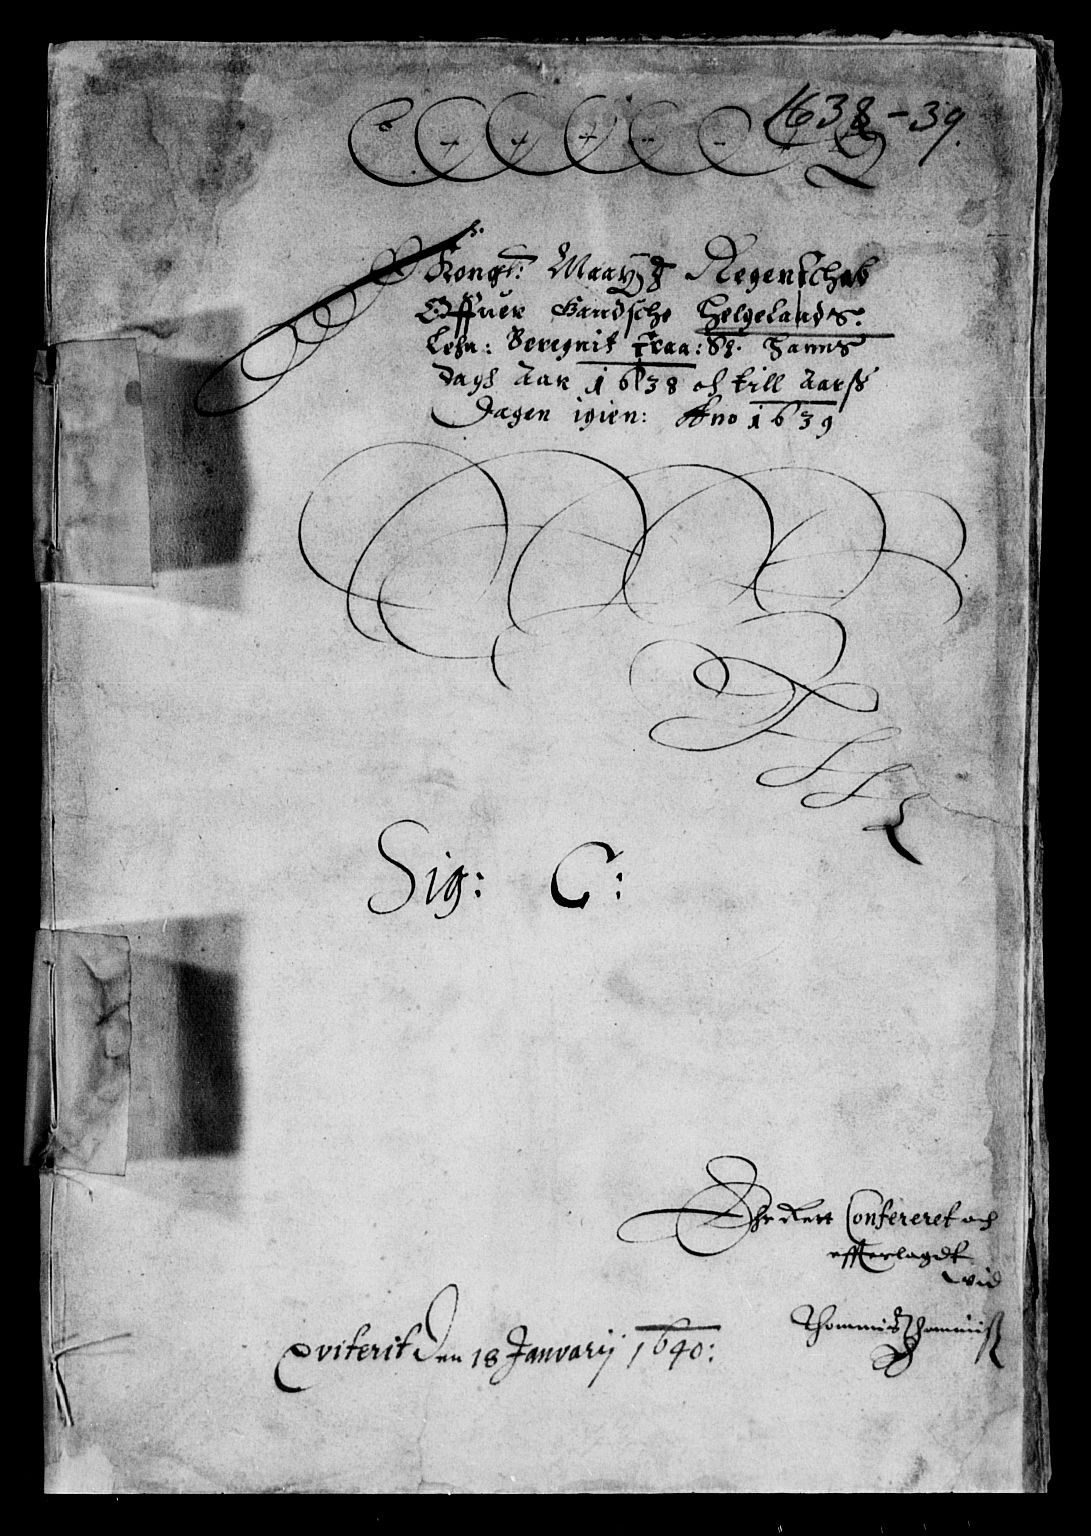 1638-39.
Kongl: Maaytz Regenschab
Offuer Gandsche Helgelands:
Lehn: Beregnit fraa: St. Hanns
dags Aar 1638 och till Aarss
Dagen igien: Ano 1639
Sig: C:
Ehr Rett Confereret och
efferlagdt
wid
Thommis Thommiss
Qviterit Den 18 Januarij 1640: